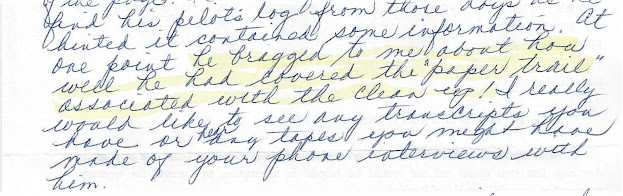 find his pilot's log from those days as he
hinted it contained some information. At
one point he bragged to me about how
well he had covered the "paper trail"
associated with the clean up! I really
would like to see any transcripts you
have or hear any tapes you might have
made of your phone interviews with
him.